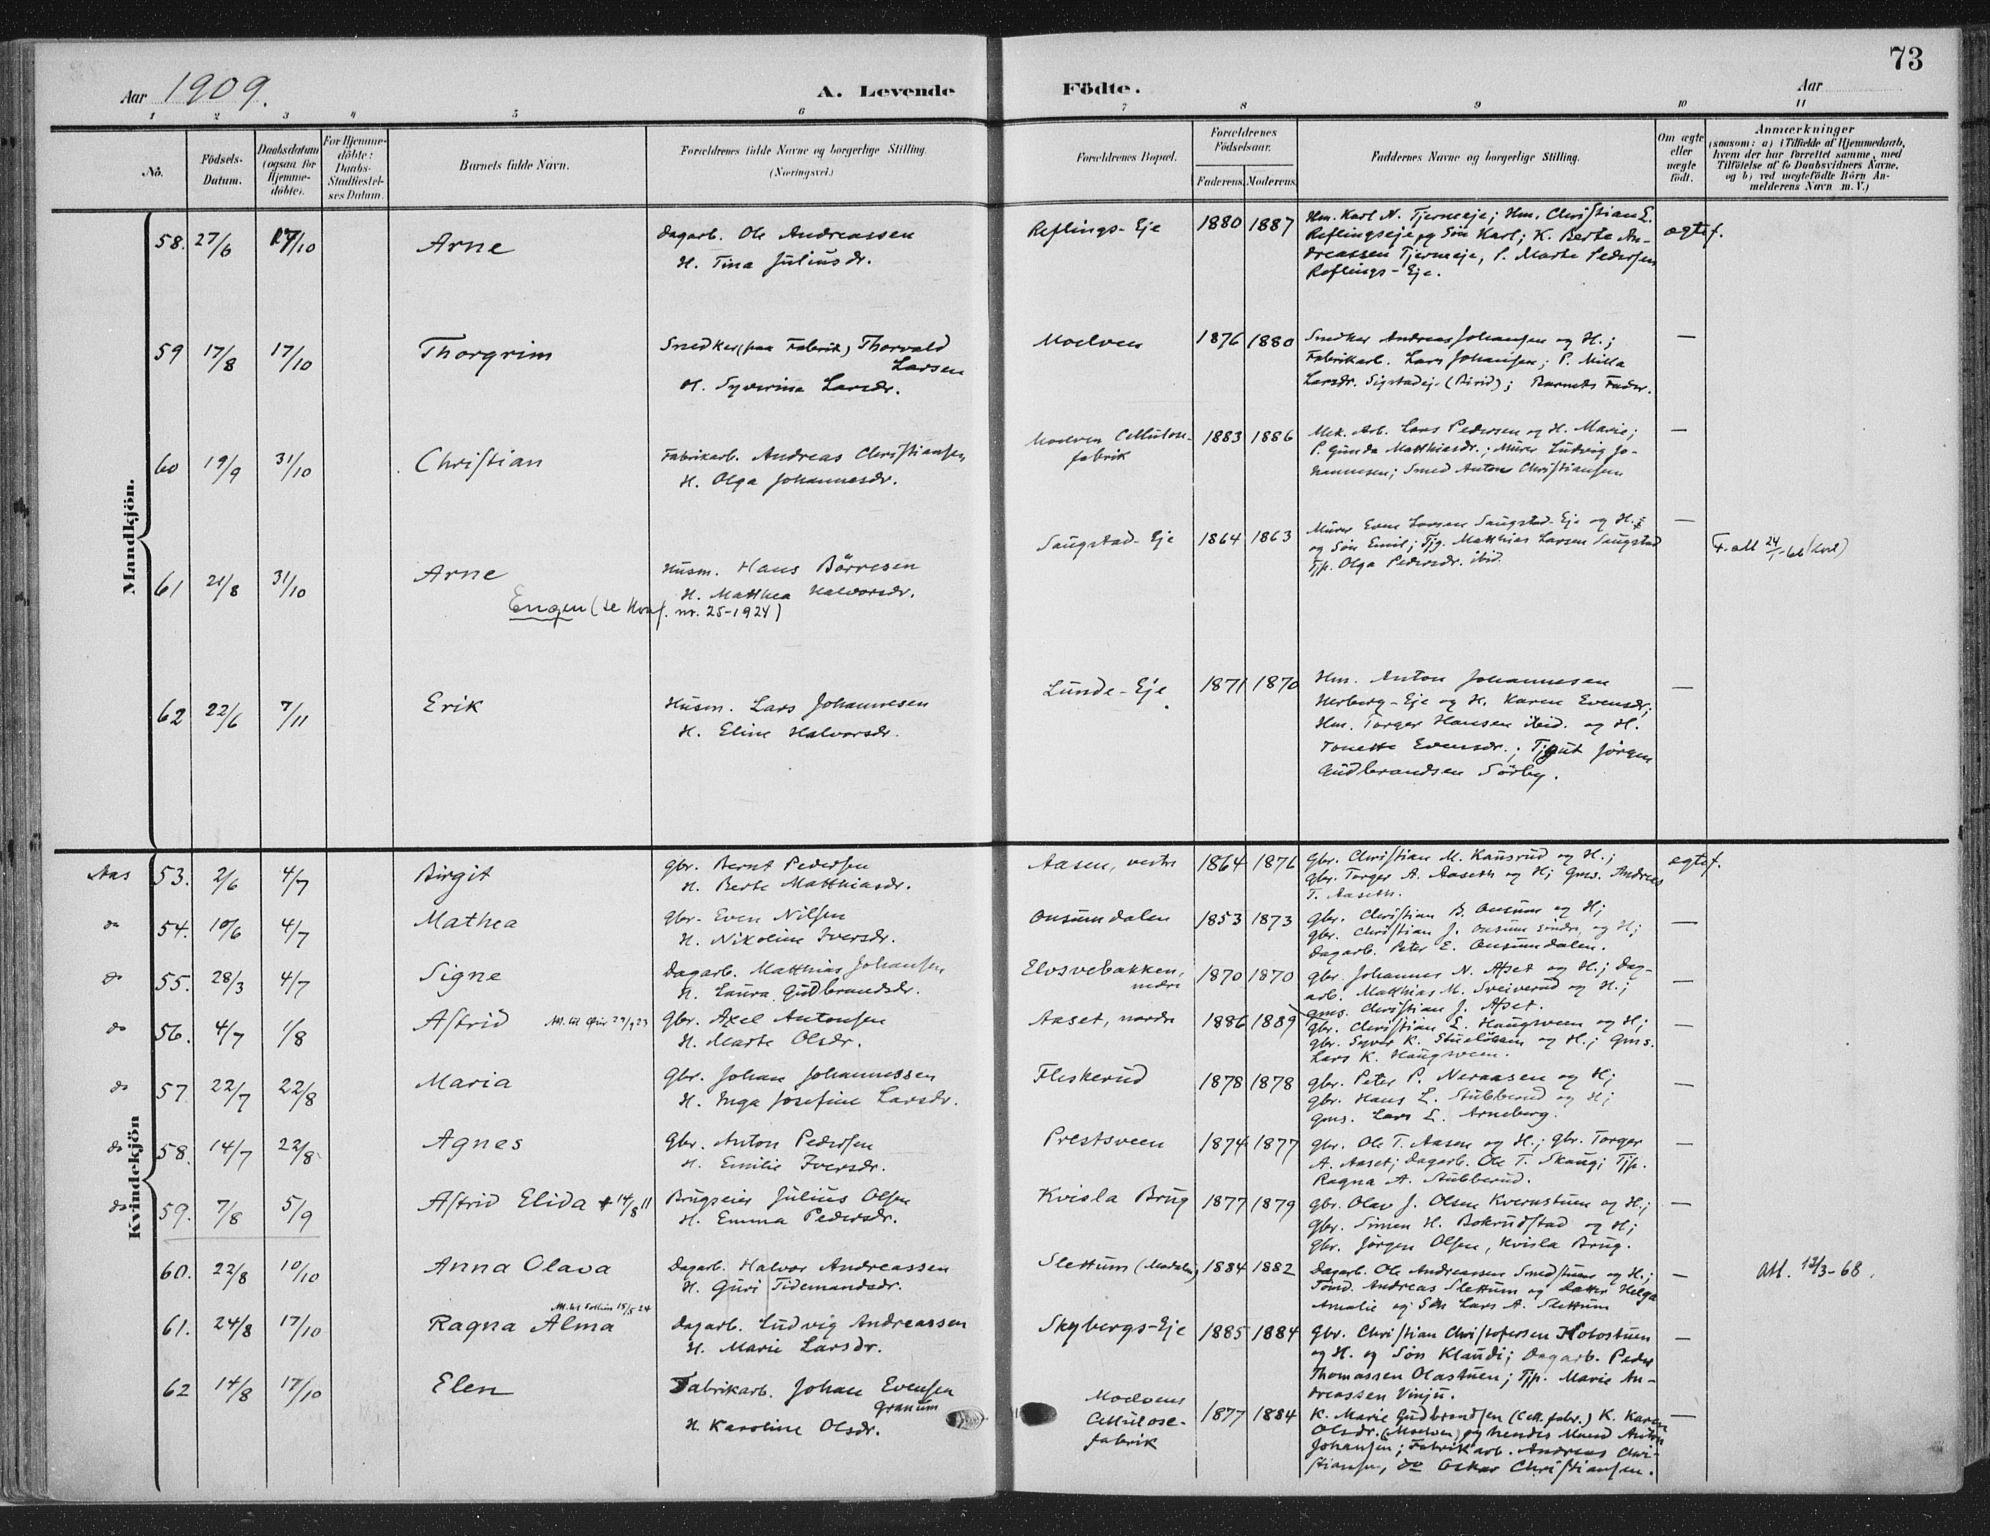 73
Aar 1909.
A. Levende Födte.
Aar
1 2 3 4 5 6 7 8 9 10 11
No.
Födsels-Datum.
Daabsdatum (ogsaa for Hjemme-döbte).
For Hjemme-döbte: Daabs-Stadfæstelses Datum.
Barnets fulde Navn.
Forældrenes fulde Navne og borgerlige Stilling. (Næringsvei.)
Forældrenes Bopæl.
Forældrenes Födselsaar.
Faderens. Moderens.
Faddernes Navne og borgerlige Stilling.
Om ægte eller uægte födt.
Anmærkninger
(saasom: a) i Tilfælde af Hjemmedaab, hvem der har forrettet samme, med Tilföielse af to Daabsvidners Navne, og b) ved uægtefödte Börn Anmelderens Navn m. V.)
Mandkjön.
58. 27/6 17/10 Arne
Dagarb. Ole Andreassen
H. Tina Juliusdr.
Reflings-Eje 1880 1887
Hm. Karl N. Tjerneeje; Hm. Christian E.
Reflingseje og Søn Karl; K. Berte An-
dreassen Tjerneeje, P. Marte Pedersen
Reflings-Eje.
ægtef.
59 17/8 17/10 Thorgrim
Snedker (paa Fabrik) Thorvald
Larsen
H. Syverine Larsdr.
Moelven 1876 1880
Snedker Andreas Johansen og H.;
Fabrikarb. Lars Johansen; P. Milla
Larsdr. Sigstadej. (Birid); Barnets Fader.
—
60 19/9 31/10 Christian
Fabrikarb. Andreas Christiansen
H. Olga Johannesdr.
Moelven Cellulose-
fabrik 1883 1886
Mek. Arb. Lars Pedersen og H. Marie;
P. Gunda Matthiasdr.; Murer Ludvig Jo-
hannesen; Smed Anton Christiansen
—
61 21/8 31/10 Arne
Engen (se Konf. nr. 25-1924)
Husm. Hans Børresen
H. Matthea Halvorsdr.
Saugstad-Eje 1864 1863
Murer Even Larsen Saugstad-Eje og H.;
og Søn Emil; Tjg. Matthias Larsen Saugstad
Tjp. Olga Pedersdr. ibid.
—
F. att 24/1-66
62 22/6 7/11 Erik
Husm. Lars Johannesen
H. Eline Halvorsdr.
Lunde-Eje 1871 1870
Hm. Anton Johannesen
Herberg-Eje og H. Karen Evensdr;
Hm. Torger Hansen ibid. og H.
Tonette Evensdr.; Tjgut Jörgen
Gudbrandsen Sörby.
—
Kvindekjön
Aas 53. 2/6 4/7 Birgit
Gbr. Bernt Pedersen
H. Berte Matthiasdr.
Aasen, vestre 1864 1876
Gbr. Christian M. Kausrud og H.;
gbr. Torger A. Aaseth og H; Gms. Andreas
T. Aaseth.
ægtef.
do 54. 10/6 4/7 Mathea
Gbr. Even Nilsen
H. Nikoline Iversdr.
Onsumdalen 1853 1873
gbr. Christian B. Onsum og H;
gbr. Christian J. Onsum søndre og H;
Dagarb. Peter E. Onsumdalen.
—
do 55. 28/3 4/7 Signe
Dagarb. Matthias Johansen
H. Laura Gudbrandsdr.
Elvsvebakken,
nedre 1870 1870
gbr. Johannes N. Afset og H.; Dag-
arb. Matthias M. Sveiverud og H.;
gms. Christian J. Afset.
—
do 56. 4/7 1/8 Astrid
Gbr. Axel Antonsen
H. Marte Olsdr.
Aaset, nordre 1886 1889
gbr. Christian L. Haugsveen og H;
gbr. Syver K. og H.; Gms.
Lars K. Haugsveen.
—
do 57. 22/7 22/8 Maria
Gbr. Johan Johannessen
H. Inga Josefine Larsdr.
Fleskerud 1878 1878
gbr. Peter P. Neraasen og H;
gbr. Hans L. Stubberud og H;
gms. Lars L. Arneberg.
—
do 58. 14/7 22/8 Agnes
Gbr. Anton Pedersen
H. Emilie Iversdr.
Prestsveen 1874 1877
gbr. Ole T. Aasen og H.; gbr. Torger
A. Aaset; Dagarb. Ole T. Skaug; Tjp.
Ragna A. Stubberud.
—
do 59. 7/8 5/9 Astrid Elida + 14/8 11
Brugseier Julius Olsen
H. Emma Pedersdr.
Kvisla Brug 1877 1879
gbr. Olav J. Olsen Kvernstuen og H.;
gbr. Simen H. Bokrudstad og H;
gbr. Jørgen Olsen, Kvisla Brug.
—
60. 22/8 10/10 Anna Olava
Dagarb. Halvor Andreassen
H. Guri Tidemandsdr.
Slettum 1884 1882
Dagarb. Ole Andreassen Smedstuen og H.;
Tømd. Andreas Slettum og Datter Helga
Amalie og Søn Lars A. Slettum
—
Att. 12/3-68.
61. 24/8 17/10 Ragna Alma
Dagarb. Ludvig Andreassen
H. Marie Larsdr.
Skybergs-Eje 1885 1884
Gbr. Christian Christofersen Holostuen
og H. og Søn Klaudi; Dagarb. Peder
Thomassen Olastuen; Tjp. Marie An-
dreassen Vinju.
—
62 14/8 17/10 Elen
Fabrikarb. Johan Evensen
Granum
H. Karoline Olsdr.
Moelvens
Cellulose-
fabrik 1877 1884
K. Marie Gudbrandsen (Cell. fabr.) K. Karen
Olsdr. (Moelven) og hendes Mand Anton
Johansen; Fabrikarb. Andreas Chri-
stiansen, do Oskar Christiansen.
—